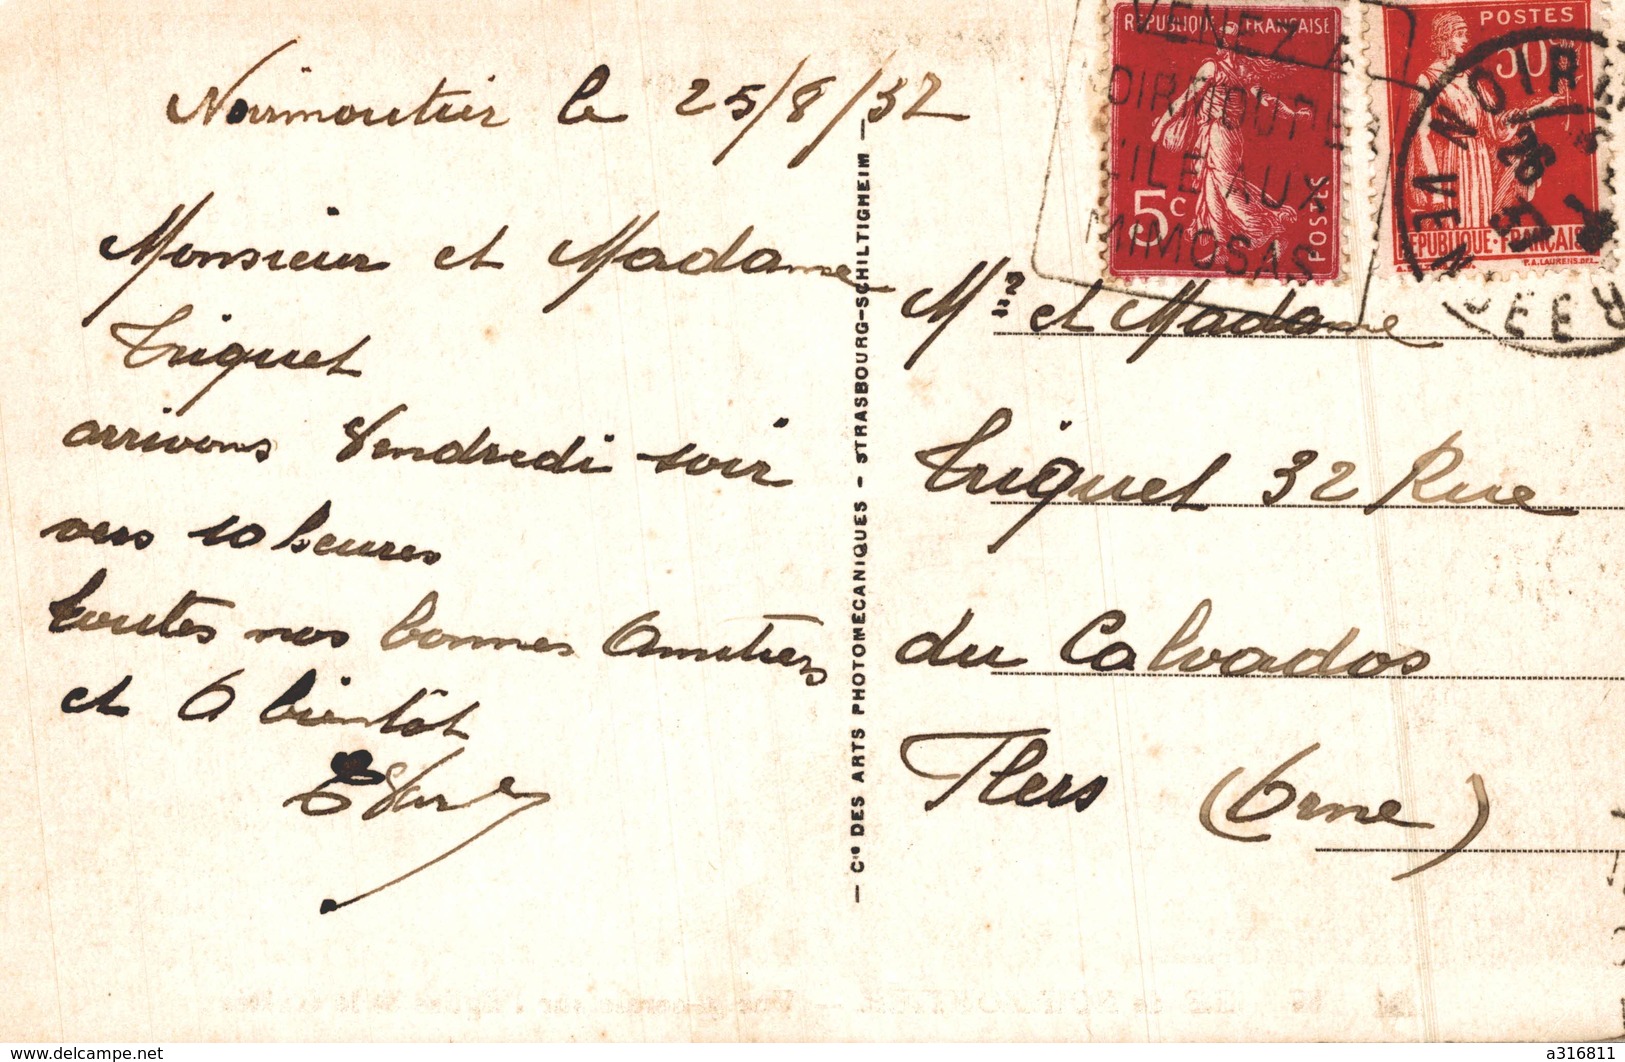 Noirmoutier le 25/8/37
Monsieur et Madame
Triquet
arrivons Vendredi soir
vers 10 heures
toutes nos bonnes Amitiers
et A bientôt
— Cie DES ARTS PHOTOMECANIQUES - STRASBOURG-SCHILTIGHEIM —
REPUBLIQUE FRANÇAISE
5c
POSTES
POSTES
50c
REPUBLIQUE-FRANÇAISE
VENEZ A
NOIRMOUTIER
L'ILE AUX
MIMOSAS
Mr et Madame
Triquet 32 Rue
du Calvados
Flers (Orne)
www.delcampe.net
a316811